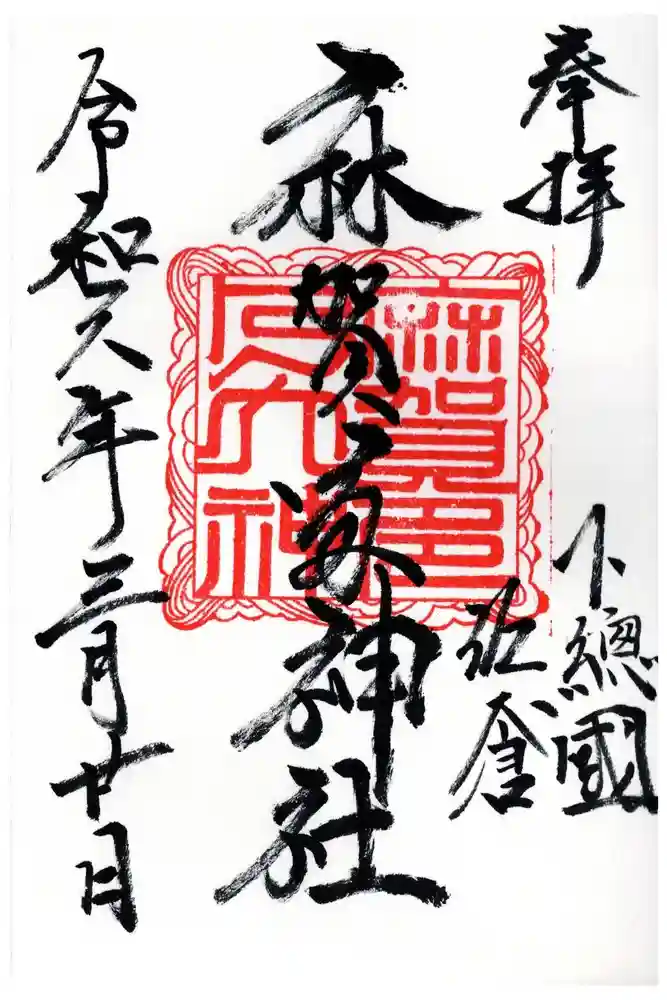 奉拝
下總國
佐倉
麻賀多神社
麻賀多
大神
令和六年三月廿日